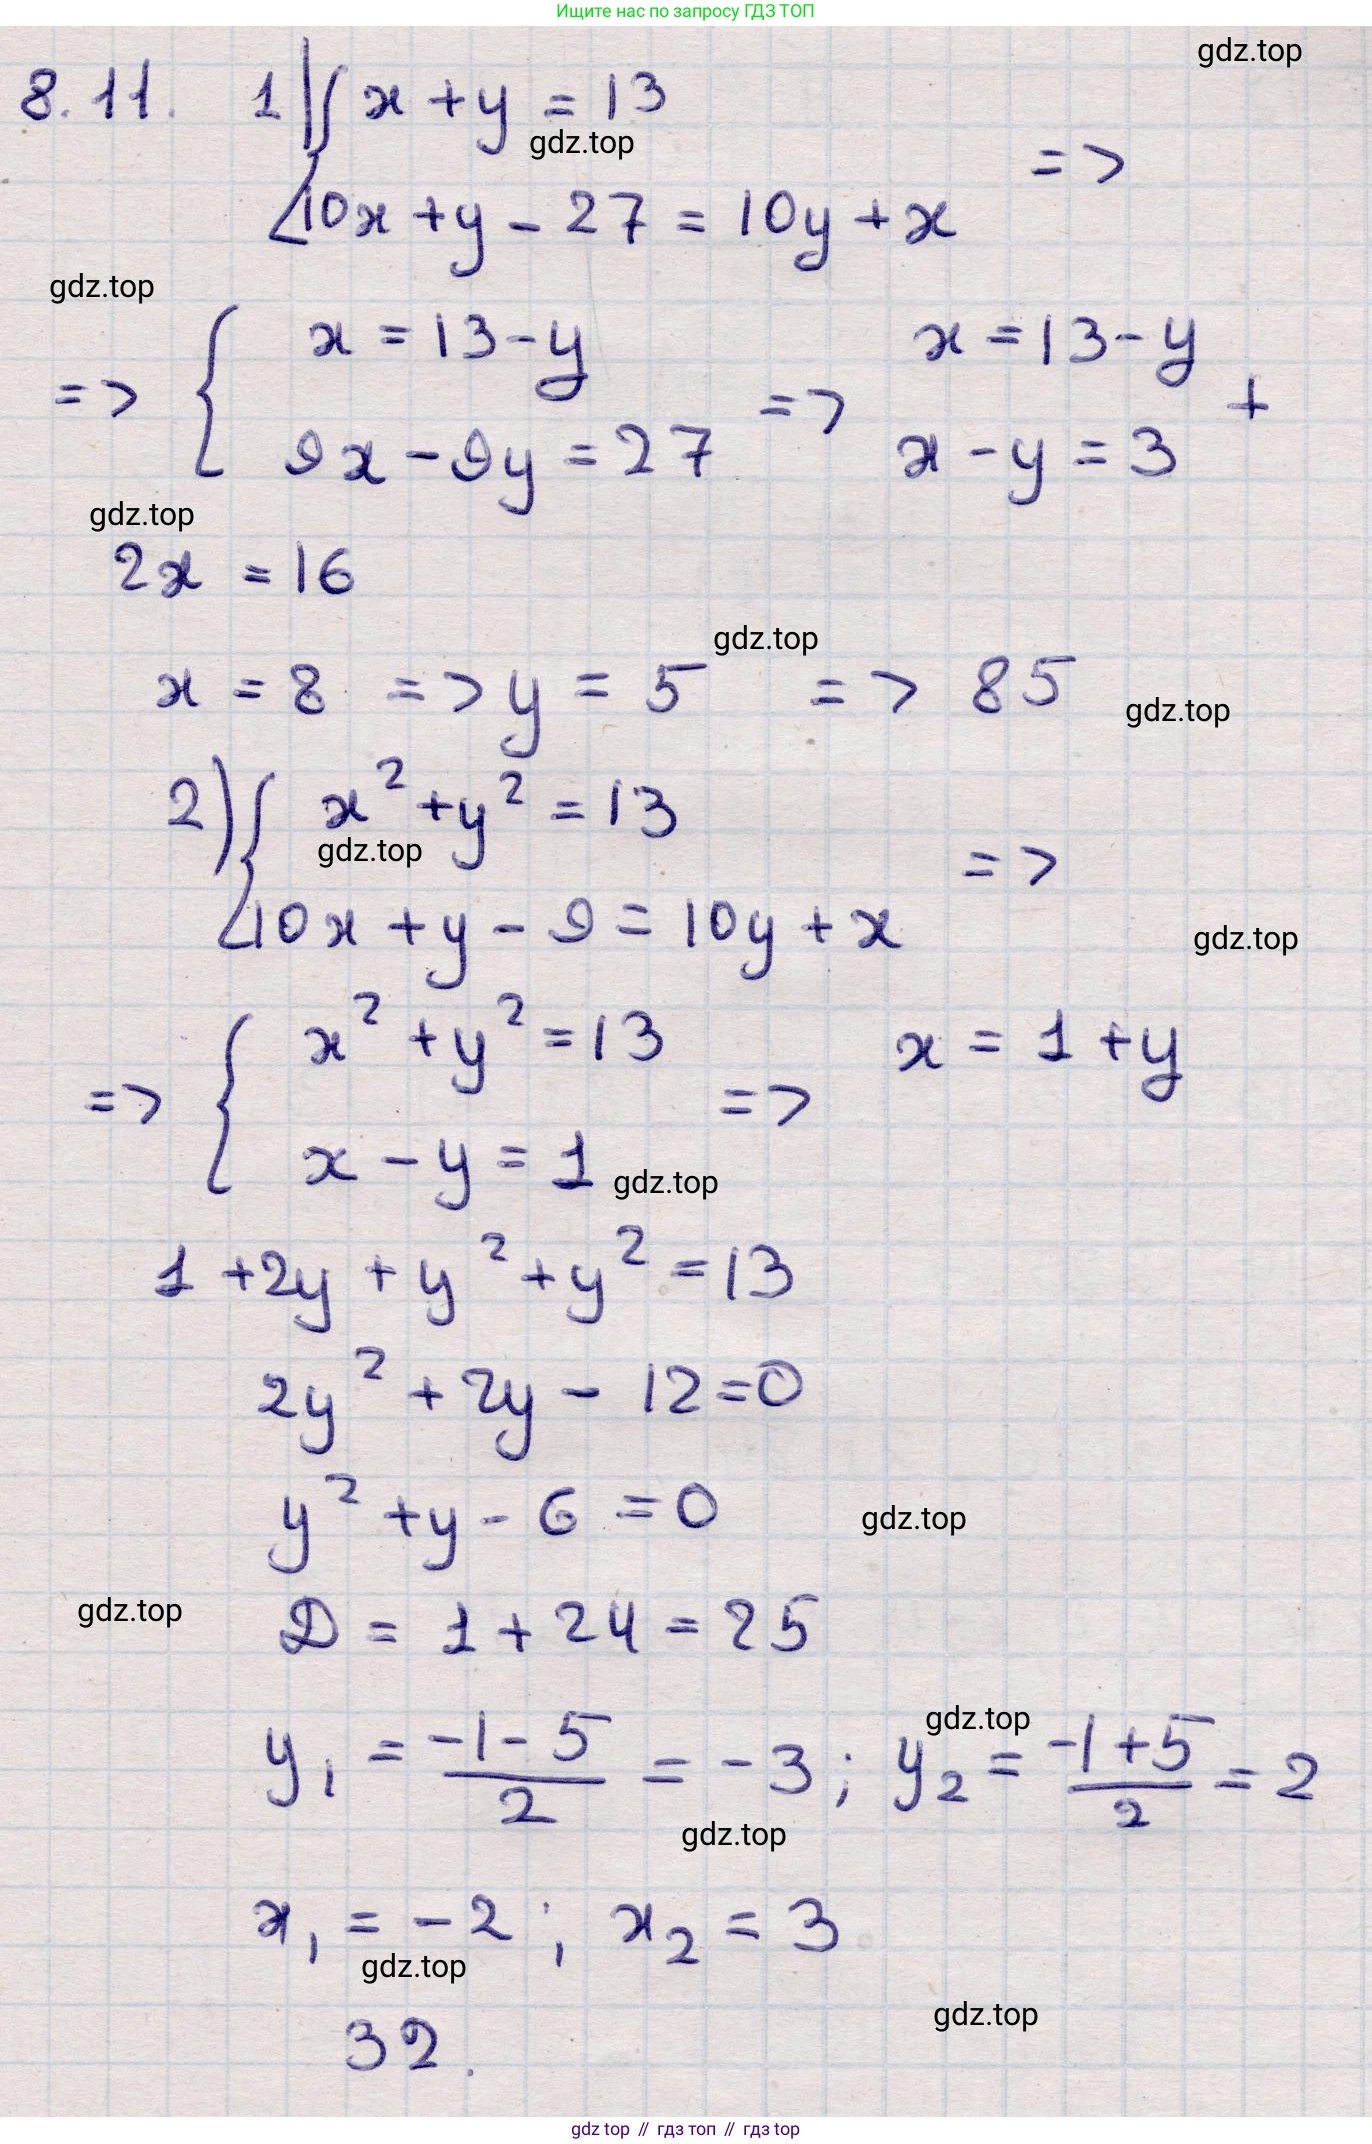 Ищите нас по запросу ГДЗ ТОП
gdz.top
8.11. 1) { x + y = 13
gdz.top
=>
10x + y - 27 = 10y + x
gdz.top
x = 13 - y x = 13 - y
=> { => +
9x - 9y = 27 x - y = 3
gdz.top
2x = 16
gdz.top
x = 8 => y = 5 => 85
gdz.top
2) { x² + y² = 13
gdz.top
=>
10x + y - 9 = 10y + x
gdz.top
x² + y² = 13 x = 1 + y
=> { =>
x - y = 1
gdz.top
1 + 2y + y² + y² = 13
2y² + 2y - 12 = 0
y² + y - 6 = 0
gdz.top
gdz.top
D = 1 + 24 = 25
gdz.top
y₁ = (-1 - 5)/2 = -3; y₂ = (-1 + 5)/2 = 2
gdz.top
x₁ = -2; x₂ = 3
gdz.top
gdz.top
32.
gdz top // гдз топ // gdz top